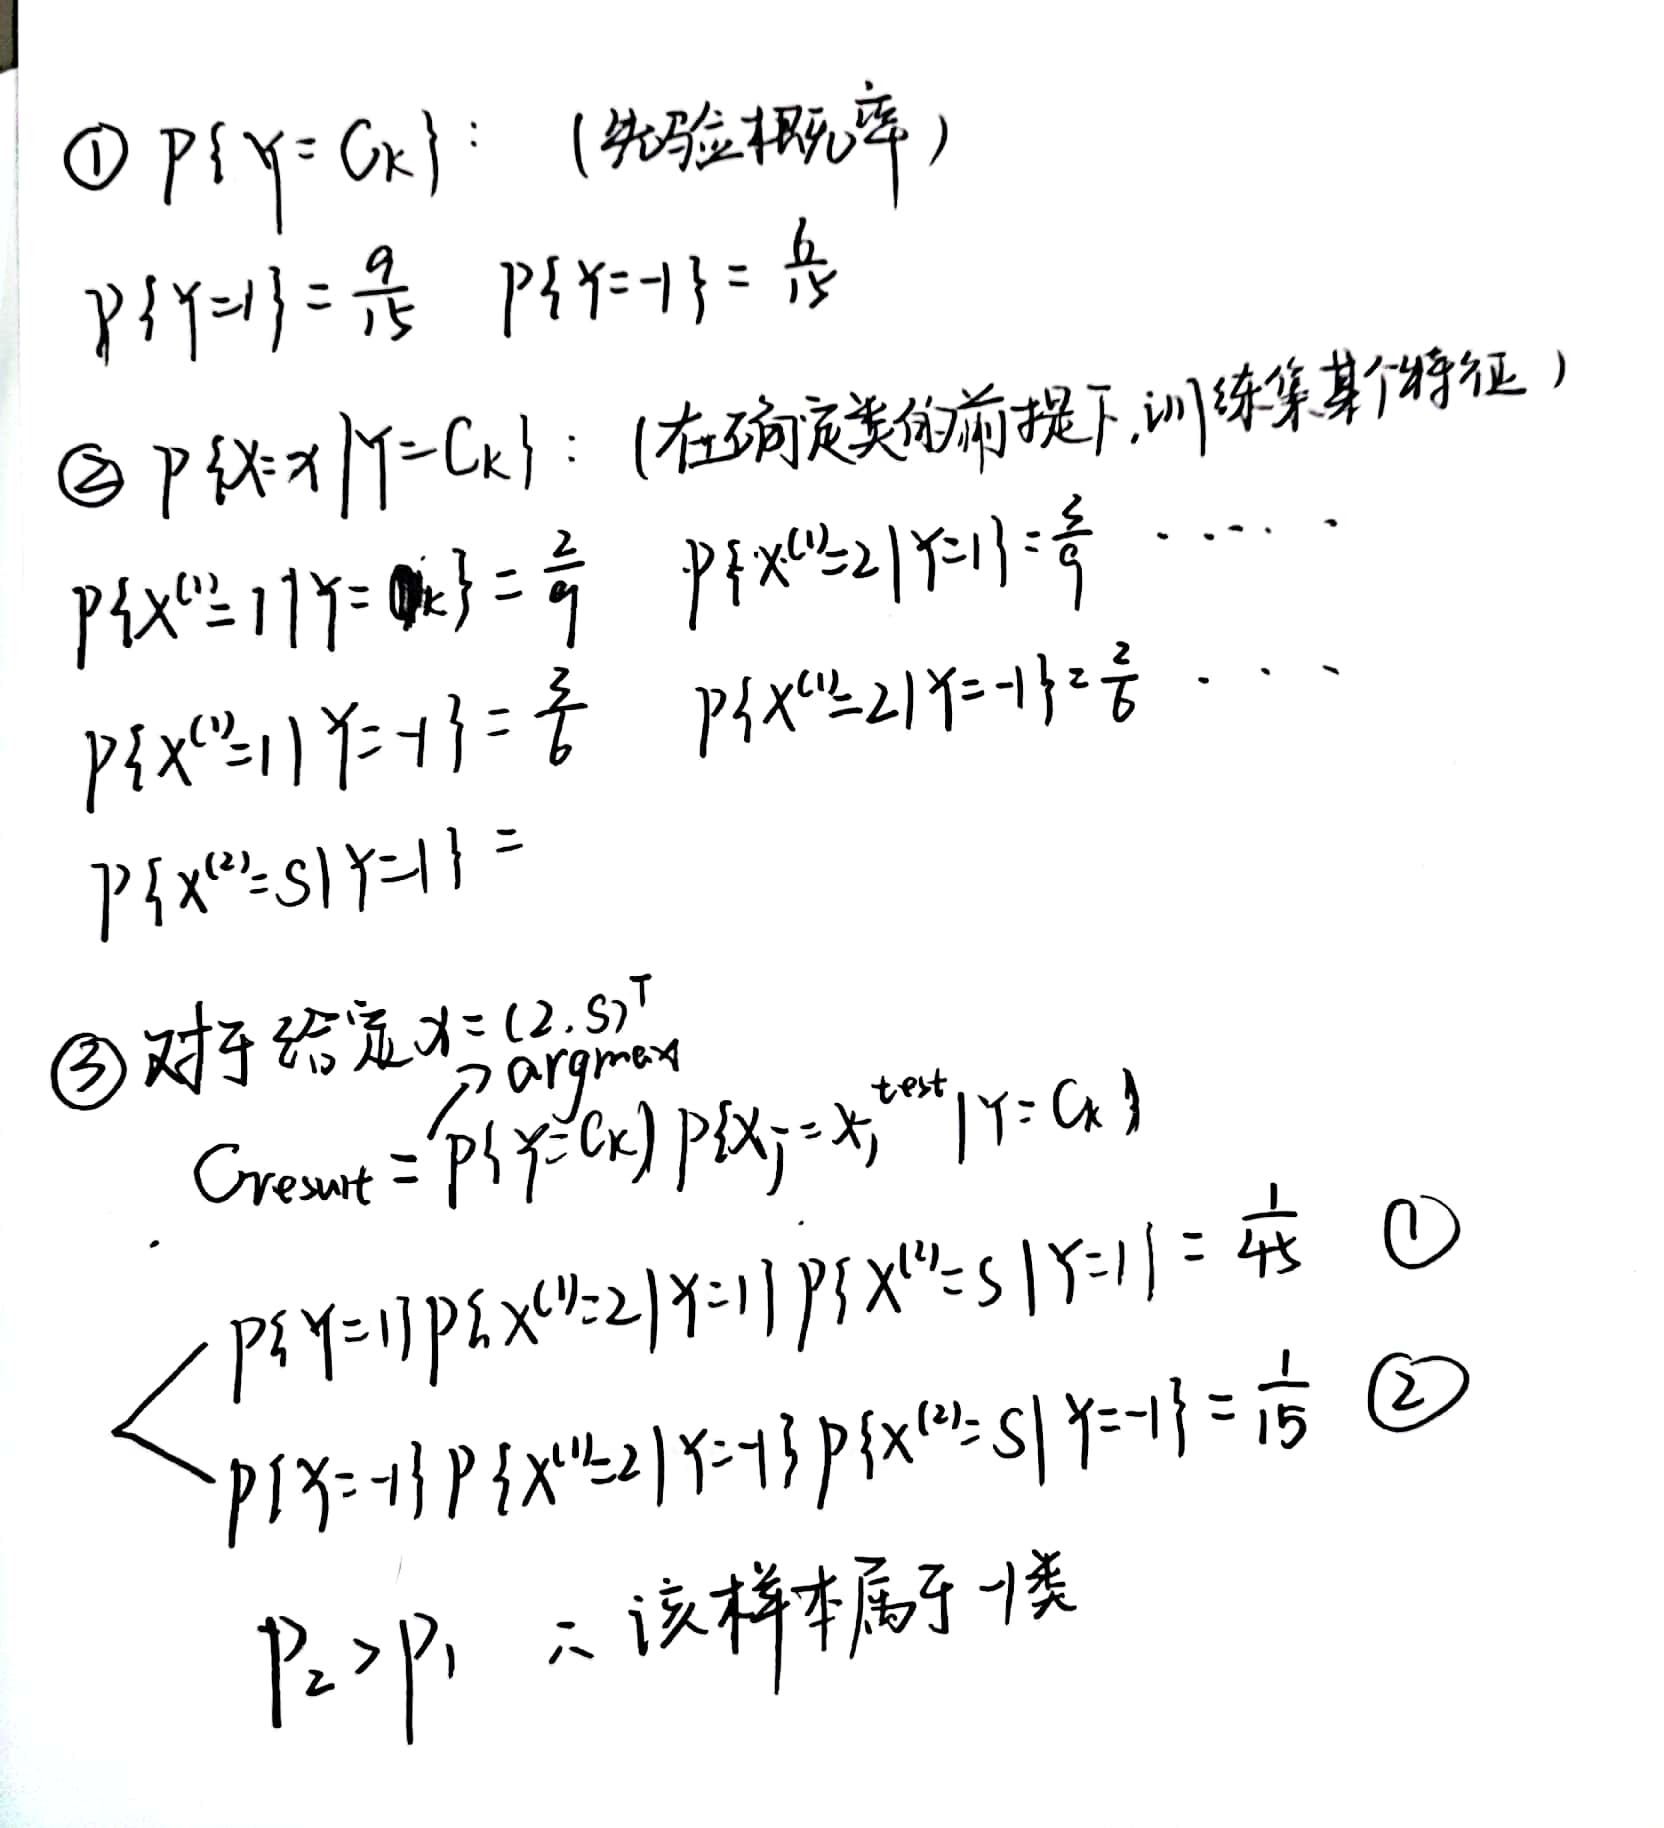 ① P{Y=Ck}: (先验概率)
P{Y=1}=9/15 P{Y=-1}=6/15
② P{X=x|Y=Ck}: (在确定类的前提下,训练集某个特征)
P{X⁽¹⁾=1|Y=k}=2/9 P{X⁽¹⁾=2|Y=1}=3/9 ·····
P{X⁽¹⁾=1|Y=-1}=3/6 P{X⁽¹⁾=2|Y=-1}=2/6 ···
P{X⁽²⁾=S|Y=1}=
③ 对于给定x=(2.S)ᵀ
argmax
Cresult=P{Y=Ck}P{Xj=xjᵗᵉˢᵗ|Y=Ck}
P{Y=1}P{X⁽¹⁾=2|Y=1}P{X⁽²⁾=S|Y=1}=1/45 ①
P{Y=-1}P{X⁽¹⁾=2|Y=-1}P{X⁽²⁾=S|Y=-1}=1/15 ②
P₂>P₁ ∴ 该样本属于-1类